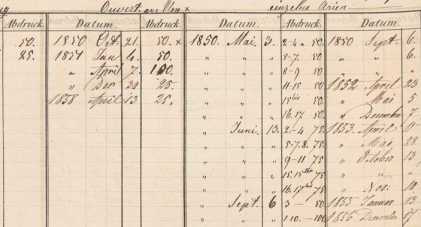 Ouvert. einzelne Arien
Abdruck. Datum. Abdruck. Datum. Abdruck. Datum.
50. 1850 Oct. 21. 50. x 1850. Mai 3. 2-4 50. 1850 Sept. 6.
25. 1851 Jan 6. 50. " " 5-7. 50. " " 6.
" April 7. 100. " " 8-9 50.
" Dec 20 25. " " 11.15 50 1852 April 23
1858 April 13. 25. " " 50. " Mai 5
" " 16.17 50 " Decembr 7
" Juni. 13. 2-4 75 1853. April 11
" " 5-7.8. 75. " Mai 28
" " 9-11 75 " October 13
" " 75
" " 75 " Nov. 10
" Sept. 6 3 — 50 1855 Januar 13
" " 1-10. — 100 1856 December 17